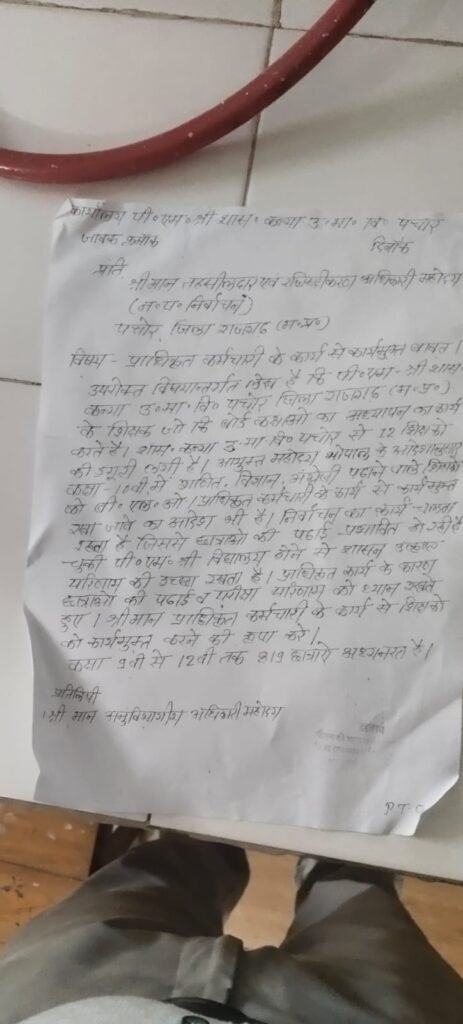 कार्यालय पी०एम०श्री शास० कन्या उ०मा० वि० पचोर
जावक क्रमांक दिनांक
प्रति,
श्रीमान तहसीलदार एवं रजिस्ट्रीकरण अधिकारी महोदय
(न०प० निर्वाचन)
पचोर जिला राजगढ (म०प्र०)
विषय - प्राधिकृत कर्मचारी के कार्य से कार्यमुक्त बावत।
उपरोक्त विषयान्तर्गत लेख है कि पी०एम० श्री शास०
कन्या उ०मा०वि० पचोर जिला राजगढ (म०प्र०)
के शिक्षक जो कि बोर्ड कक्षाओ का अध्यापन का कार्य
करते है। शास० कन्या उ०मा वि० पचोर से 12 शिक्षको
की ड्यूटी लगी है। आयुक्त महोदय भोपाल के आदेशानुसार
कक्षा-10वी में गणित, विज्ञान, अंग्रेजी पढाने वाले शिक्षको
को बी० एल० ओ।प्राधिकृत कर्मचारी के कार्य से कार्यमुक्त
रखा जावे का आदेश भी है। निर्वाचन का कार्य चलता
रहता है जिससे छात्राओ की पढाई प्रभावित हो रही है
चुकी पी०एम० श्री विद्यालय होने से शासन उत्कृष्ट
परिणाम की इच्छा रखता है। प्राधिकृत कार्य के कारण
छात्राओ की पढाई व परीक्षा परिणाम को ध्यान रखते
हुए। श्रीमान प्राधिकृत कर्मचारी के कार्य से शिक्षको
को कार्यमुक्त करने की कृपा करे।
कक्षा 9वी से 12वी तक 819 छात्राये अध्यनरत है।
प्रतिलिपी
1 श्री मान अनुविभागीय अधिकारी महोदय
P T O